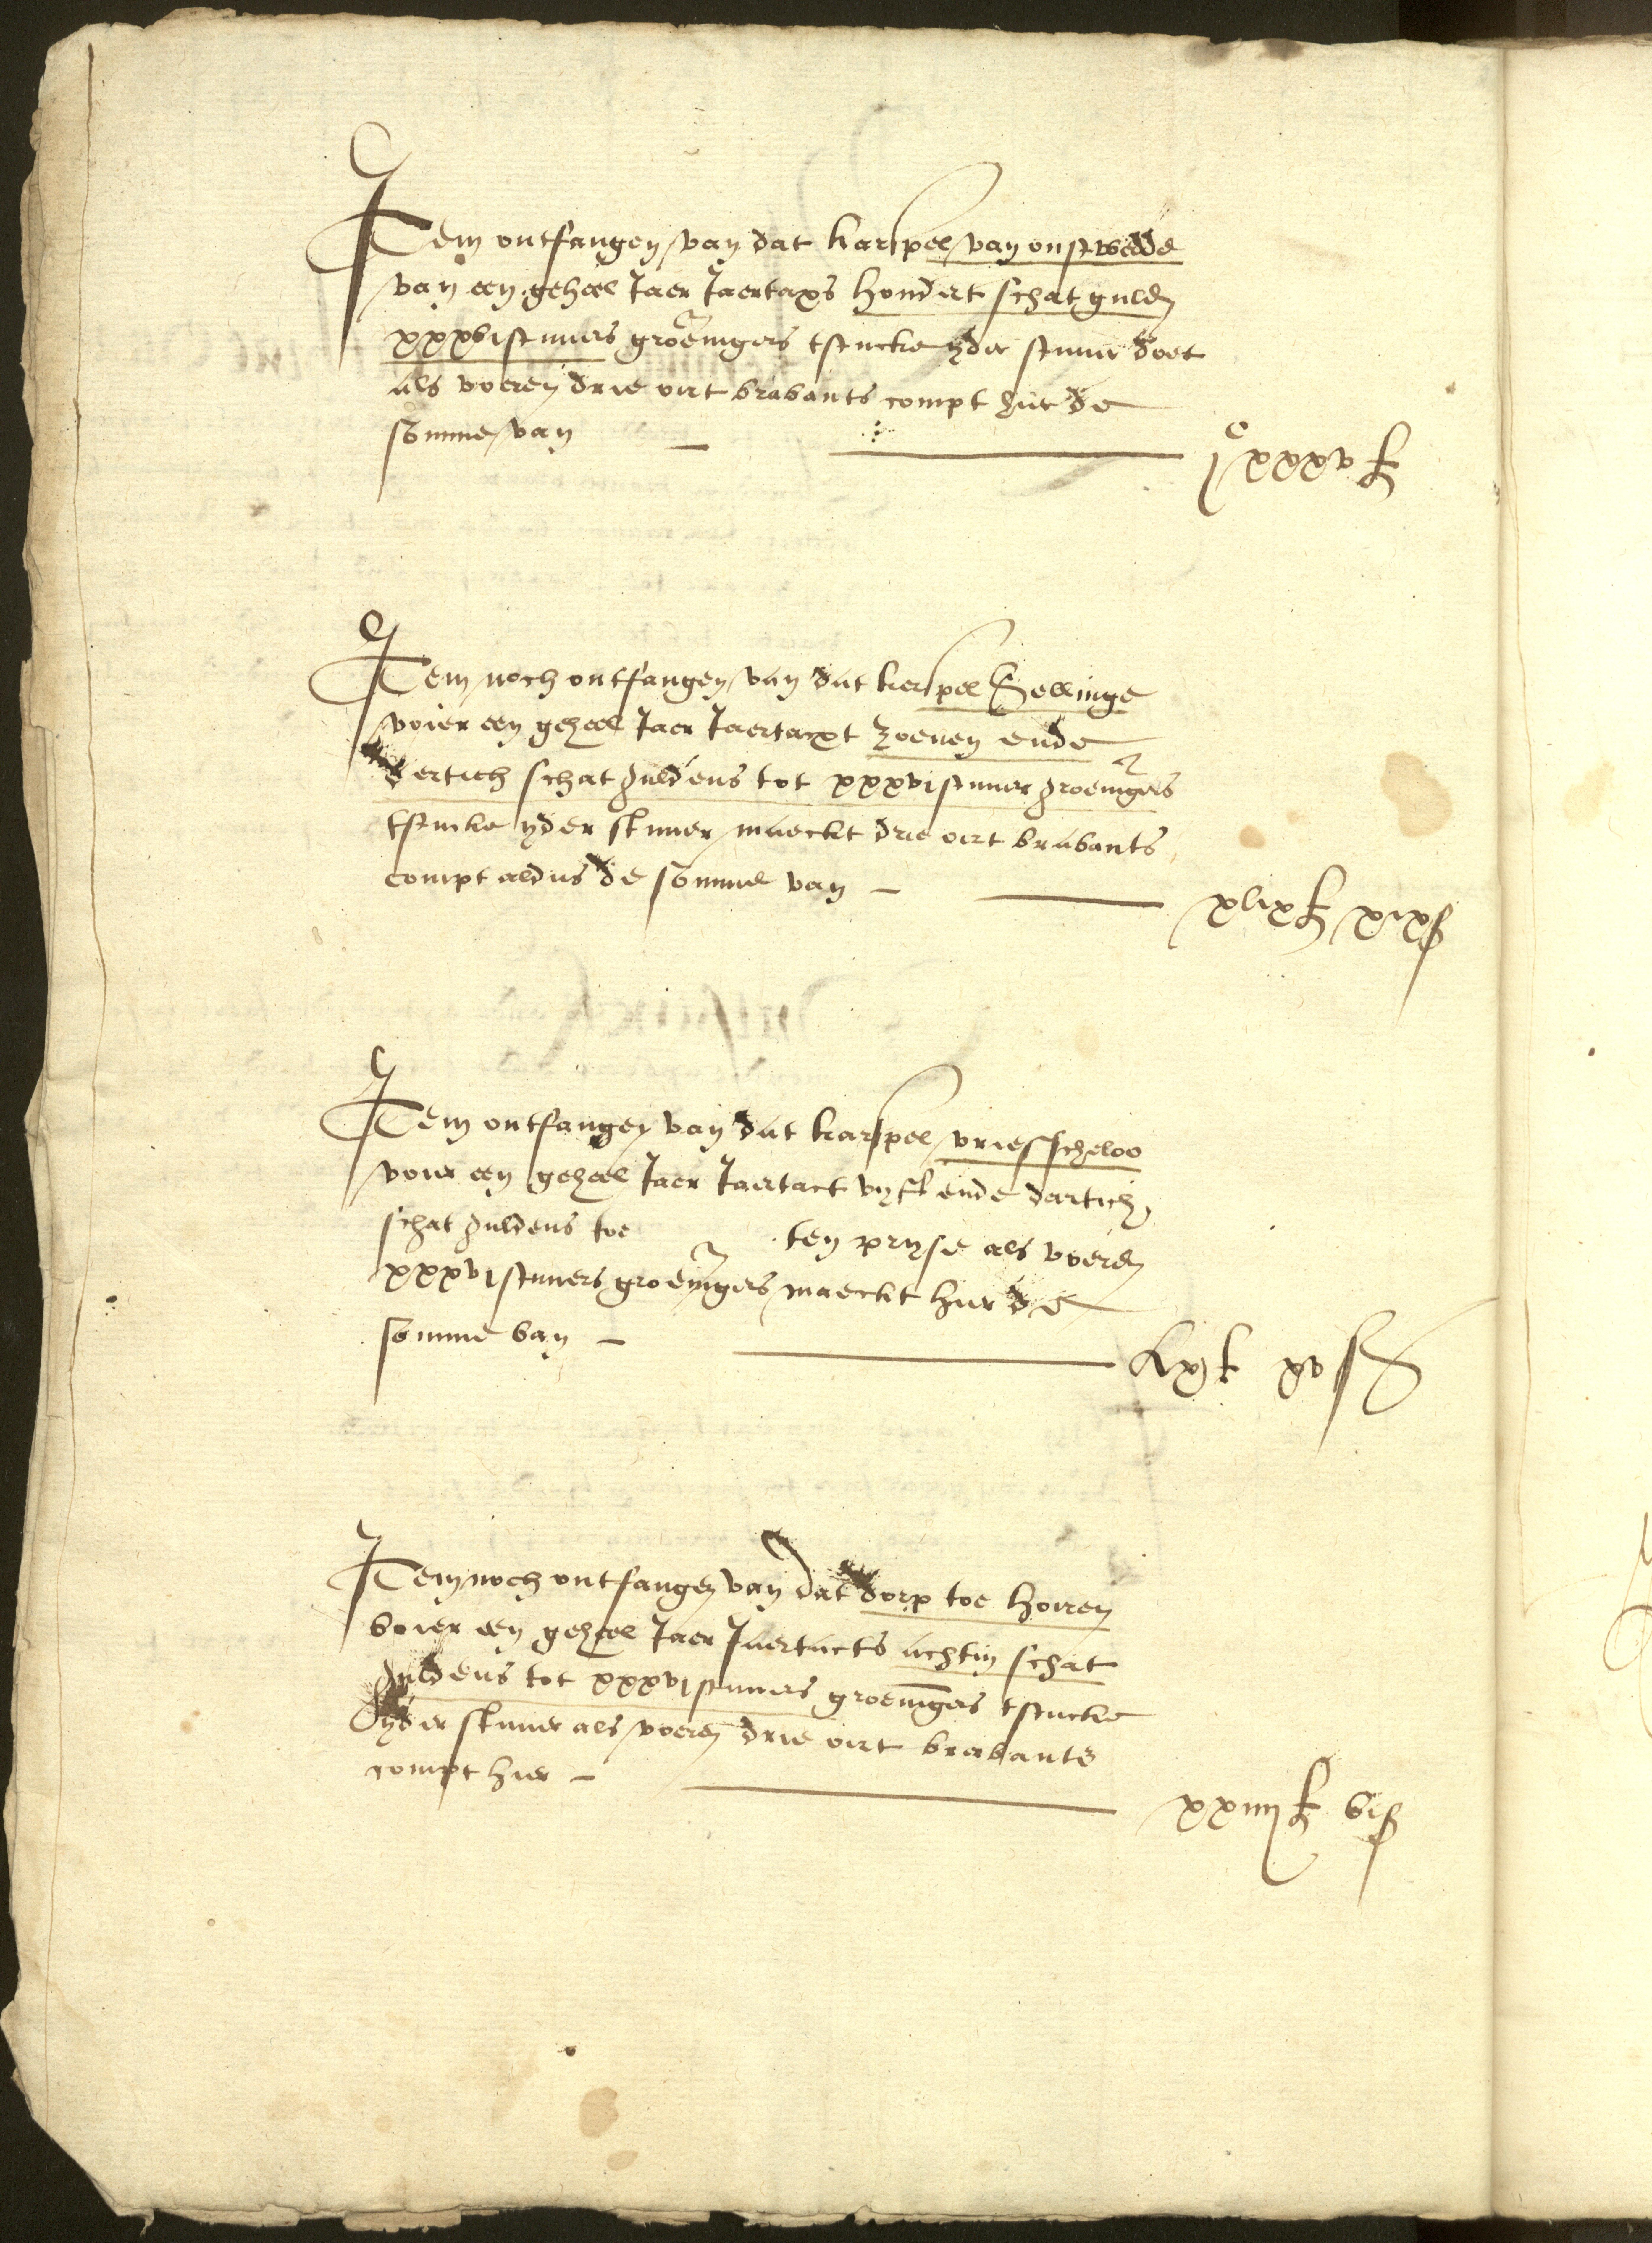 Item ontfangen van dat karspel van onstwedde
van een geheel Jaer Jaertaxs hondert schat gulden
xxxvi stuuers groeningers tstucke yder stuuer doet
als voeren drie oirt brabants compt hier de
somme van — jc xxxv £
Item noch ontfangen van dat kerspel Sellinge
voier een geheel Jaer Jaertaxt zoeuen ende
dertich schat guldens tot xxxvi stuuer groeningers
tstucke yder stuuer maeckt drie oirt brabants
compt aldus de somme van — xlix £ xix s
Item ontfangen van dat karspel vriesscheloo
voier een geheel Jaer Jaertact vyff ende dartich
schat guldens toe ten pryse als voeren
xxxvi stuuers groeningers maeckt hier de
somme van — £ xv s
Item noch ontfangen van dat dorp toe horen
voier een geheel Jaer Jaertacts achtin schat
guldens tot xxxvi stuuers groeningers tstucke
yder stuuer als voeren drie oirt brabants
compt hier — xxiiij £ vi s